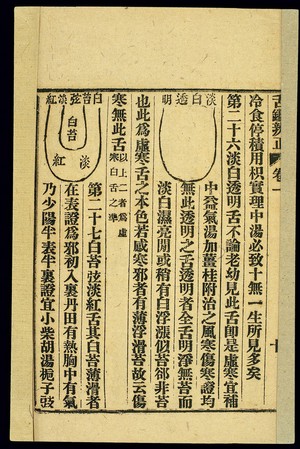 舌鑑辨正 卷一
十
冷食停積用枳實理中湯必致十無一生所見多矣
第二十六淡白透明舌不論老幼見此舌卽是虛寒宜補
淡白透明
中益氣湯加薑桂附治之風寒傷寒證均
無此透明之舌透明者全舌明淨無苔而
淡白濕亮間或稍有白浮漲似苔卻非苔
也此爲虛寒舌之本色若感寒邪者有薄浮滑苔故云傷
寒無此舌以上二者爲虛寒白舌之準
白苔弦淡紅
白苔
淡
紅
第二十七白苔弦淡紅舌其白苔薄滑者
在表證爲邪初入裏丹田有熱胸中有氣
乃少陽半表半裏證宜小柴胡湯梔子豉